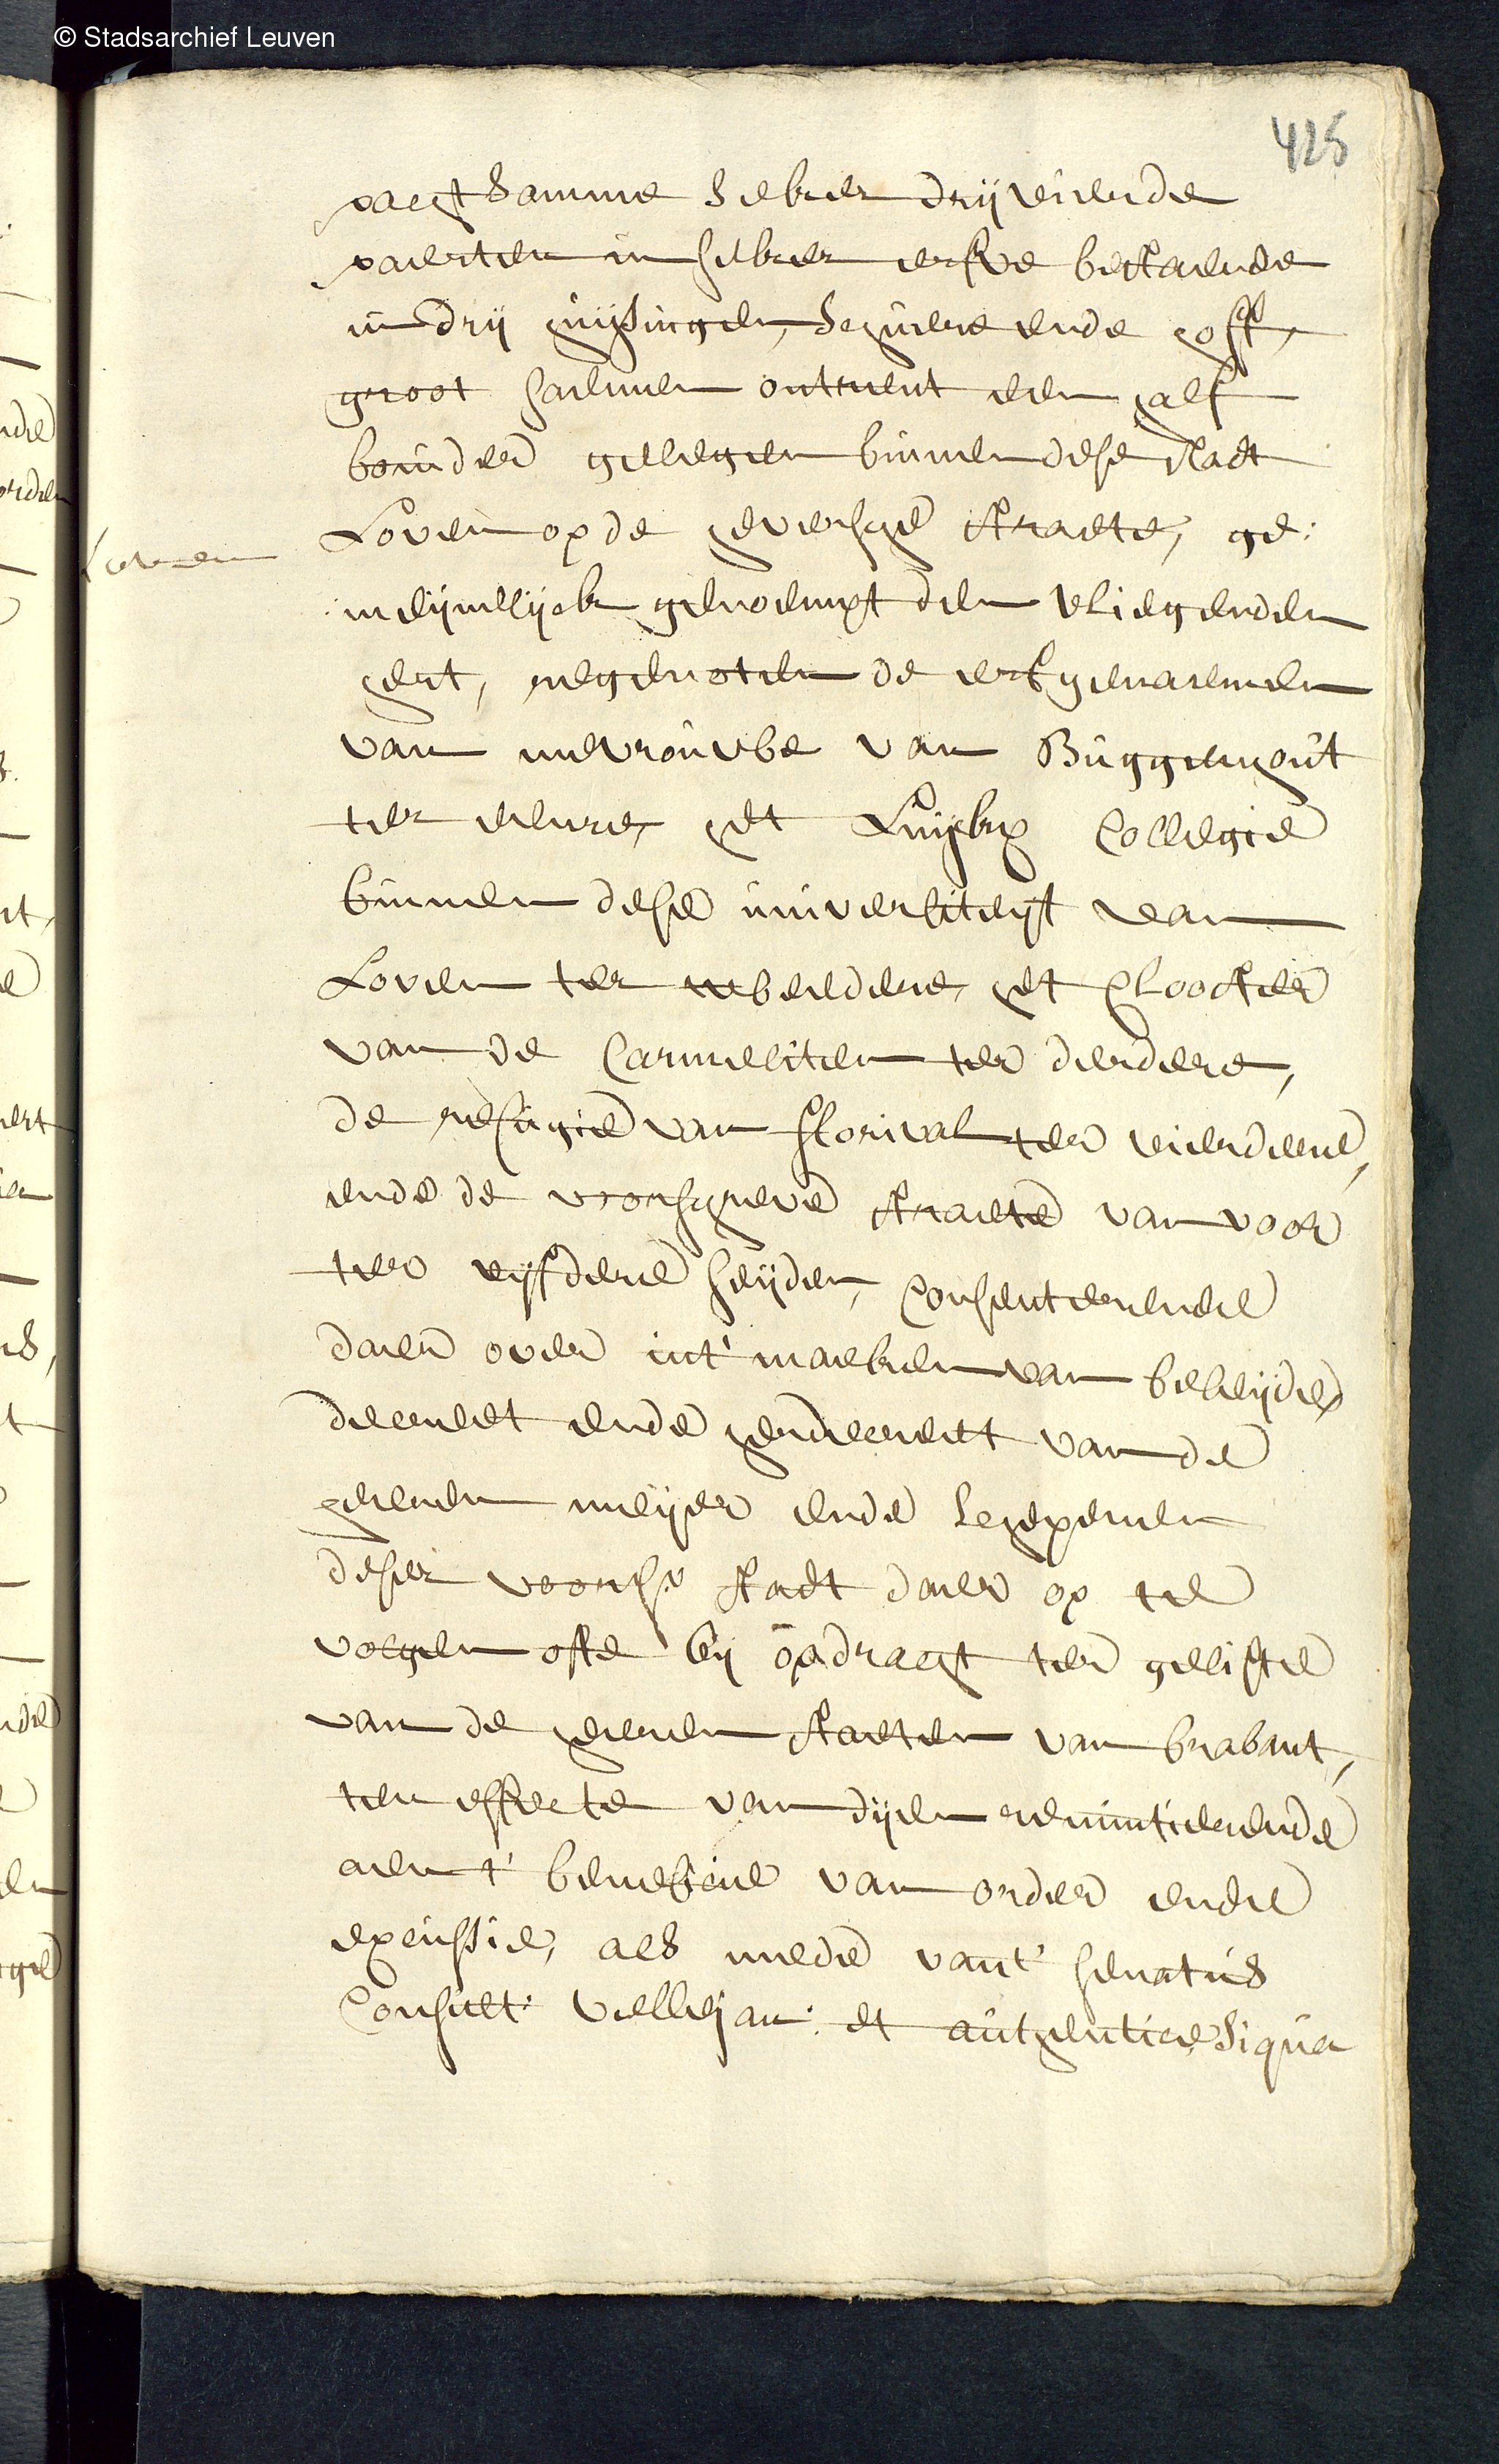 © Stadsarchief Leuven
425
pacht samme seker drij vierde
paerten in sekere erfve bestaende
in drij huijsingen, schuere ende hoff,
groot saemen ontrent een half
bonder gelegen binnen dese stadt
Loven op de heversche straete, ge:
Loven
meijnelijck genoempt den vliegenden
hert, regenoten de erfgenaemen
van mevrouwe van Buggenhout
ter eenre, het Luycx Collegie
binnen dese universiteijt van
Loven ter tweedere, het clooster
van de Carmeliten ter derdere,
de refugie van florival ter vierdere,
ende de voorschreve straete van voor
ter vijfdere seijden, Consenterende
daer over int' maeken van beleijde
decreet ende herdecreett van de
heeren meijer ende schepenen
deser voors. stadt daer op te
volgen ofte bij opdracht ter geliefte
van de heeren staeten van brabant,
ten effecte van dijen renuntierende
aen t' beneficie van order ende
excussie, als mede vant' senatus
Consult: vellejan: et authentice si qua